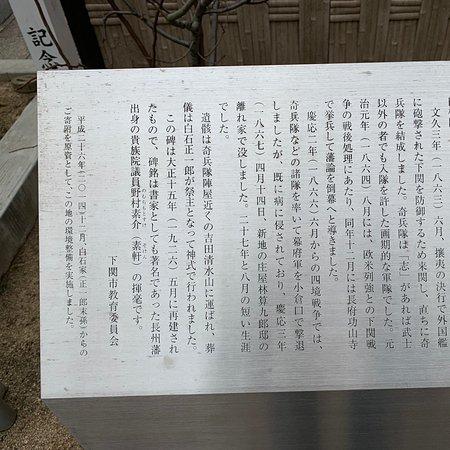 記念
文久三年(一八六三)六月、攘夷の決行で外国艦
に砲撃された下関を防御するため来関し、直ちに奇
兵隊を結成しました。奇兵隊は「志」があれば武士
以外の者でも入隊を許した画期的な軍隊でした。元
治元年(一八六四)八月には、欧米列強との下関戦
争の戦後処理にあたり、同年十二月には長府功山寺
で挙兵して藩論を倒幕へと導きました。
慶応二年(一八六六)六月からの四境戦争では、
奇兵隊などの諸隊を率いて幕府軍を小倉口で撃退
しましたが、既に病に侵されており、慶応三年
(一八六七)四月十四日、新地の庄屋林算九郎邸の
離れ家で没しました。二十七年と八月の短い生涯
でした。
遺骸は奇兵隊陣屋近くの吉田清水山に運ばれ、葬
儀は白石正一郎が祭主となって神式で行われました。
この碑は大正十五年(一九二六)五月に再建され
たもので、碑銘は書家としても著名であった長州藩
出身の貴族院議員野村素介(素軒)の揮毫です。
のむらもとすけ そけん
下関市教育委員会
平成二十六年(二〇一四)十二月、白石家(正一郎末孫)からの
ご寄附を原資として、この地の環境整備を実施しました。